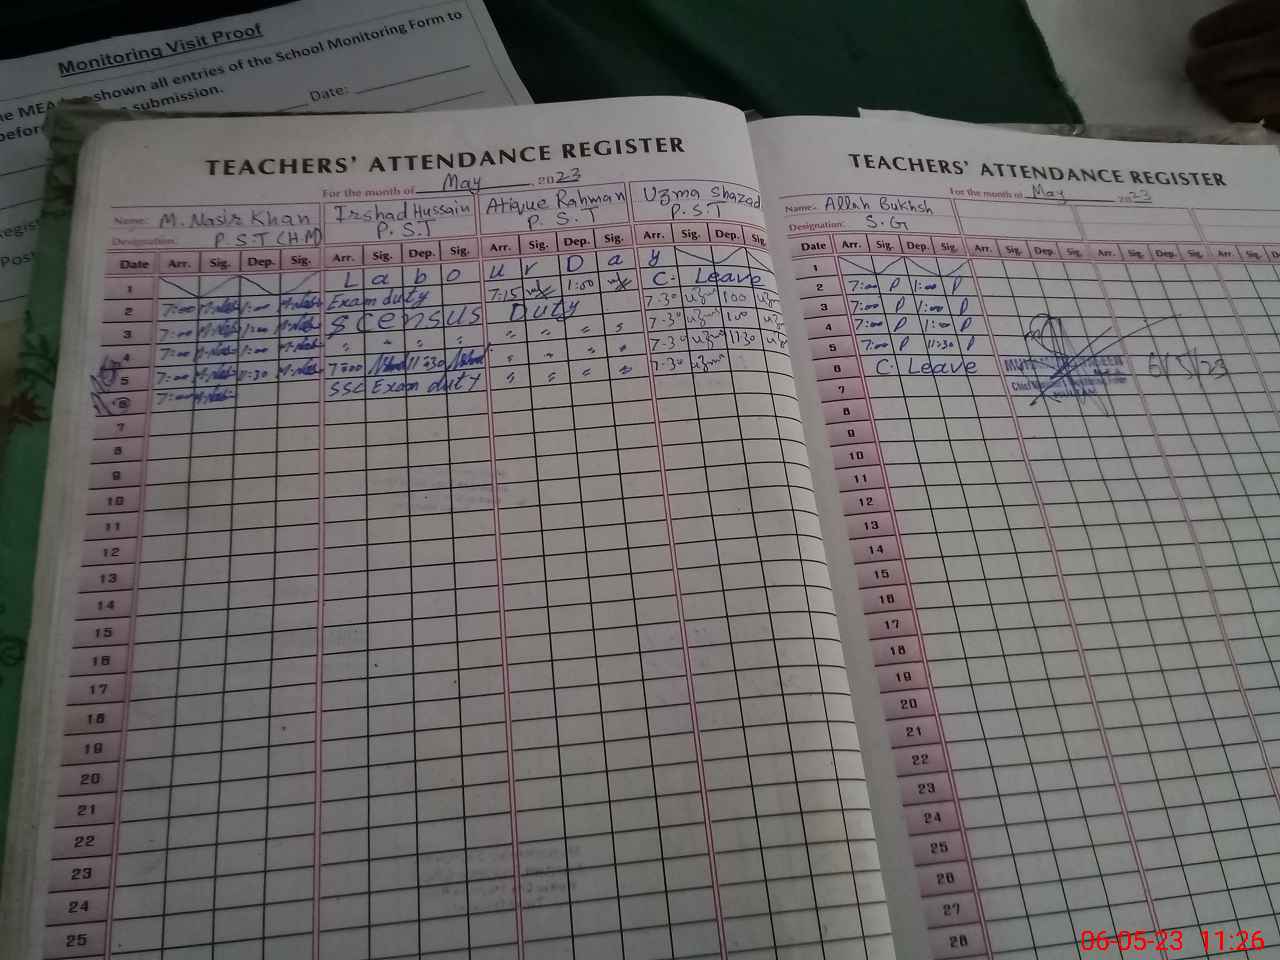 Monitoring Visit Proof
shown all entries of the School Monitoring Form to
before submission.
Date:
TEACHERS' ATTENDANCE REGISTER
For the month of May, 2023
Name: M. Nasir Khan Irshad Hussain Atique Rahman Uzma Shazad
Designation: P.S.T (H.M) P. S.T P. S. T P. S. T
Date Arr. Sig. Dep. Sig. Arr. Sig. Dep. Sig. Arr. Sig. Dep. Sig. Arr. Sig. Dep. Sig.
1 L a b o u r D a y
2 7:00 1:00 Exam duty 7:15 1:00 C. Leave
3 7:00 1:00 Census Duty 7:30 1:00
4 7:00 1:00 " " " " " " " " 7:30 1:00
5 7:00 11:30 7:00 11:30 " " " " 7:30 11:30
6 7:00 SSC Exam duty " " " " 7:30
7
8
9
10
11
12
13
14
15
16
17
18
19
20
21
22
23
24
25
TEACHERS' ATTENDANCE REGISTER
For the month of May 2023
Name: Allah Bukhsh
Designation: S.G
Date Arr. Sig. Dep. Sig. Arr. Sig. Dep. Sig. Arr. Sig. Dep. Sig. Arr. Sig.
1
2 7:00 P 1:00 P
3 7:00 P 1:00 P
4 7:00 P 1:00 P
5 7:00 P 11:30 P
6 C. Leave 6/5/23
7
8
9
10
11
12
13
14
15
16
17
18
19
20
21
22
23
24
25
26
27
28
06-05-23 11:26